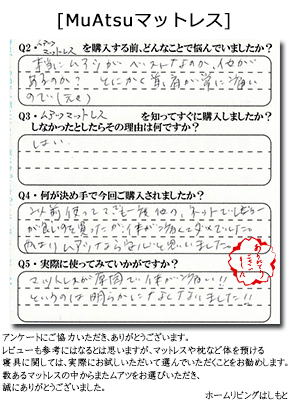 [MuAtsuマットレス]
Q2・ムアツマットレス を購入する前、どんなことで悩んでいましたか?
本当にムアツがベストなのか、他が
あるのか? とにかく首、肩が常に痛い
ので
Q3・ムアツマットレス を知ってすぐに購入しました?
しなかったとしたらその理由は何ですか?
はい
Q4・何が決め手で今回ご購入されましたか?
以前使ってて
が良いのを買ったが、体が痛くてダメでした
ムアツなら安心と思いました
Q5・実際に使ってみていかがですか?
マットレスが原因で体が痛い!!
というのは明らかに
アンケートにご協力いただき、ありがとうございます。
レビューも参考にはなるとは思いますが、マットレスや枕など体を預ける
寝具に関しては、実際にお試しいただいて選んでいただくことをお勧めします。
数あるマットレスの中からまたムアツをお選びいただき、
誠にありがとうございました。
ホームリビングはしもと